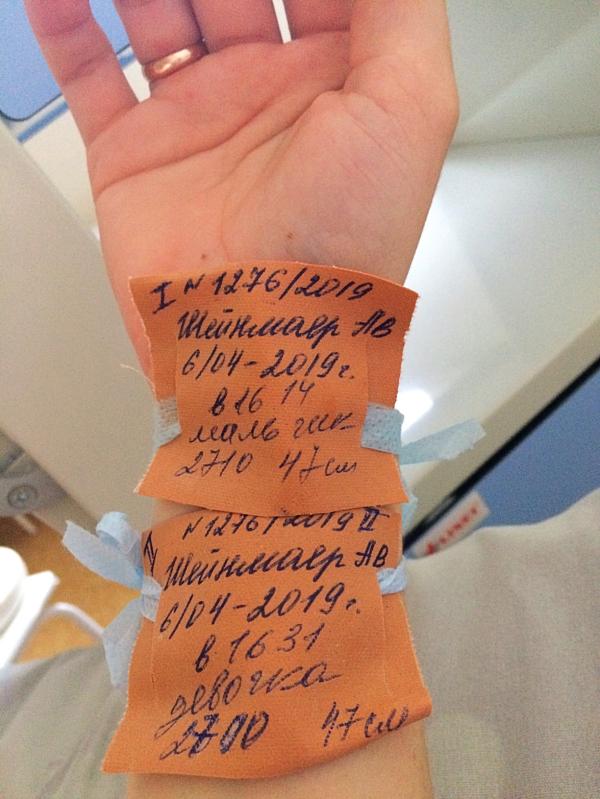 I N 1276/2019
Шейнмаер АВ
6/04-2019г.
в 16 14
мальчик
2710 47см
N 1276/2019 II
Шейнмаер АВ
6/04-2019г.
в 16 31
девочка
47см